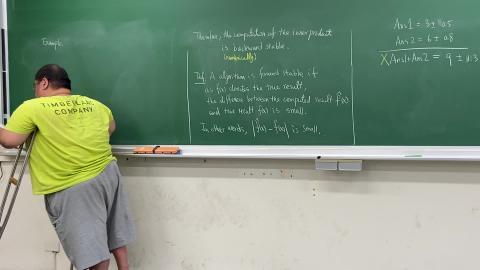 Example
TIMBERLAND
COMPANY
Therefore, the computation of the inner product
is backward stable.
(numerically)
Def. A algorithm is forward stable if
as f(x) denotes the true result,
the difference between the computed result f̂(x)
and true result f(x) is small.
In other words, |f̂(x) - f(x)| is small.
Ans1 = 3 ± 11.5
Ans2 = 6 ±
X Ans1+Ans2 = 9 ±